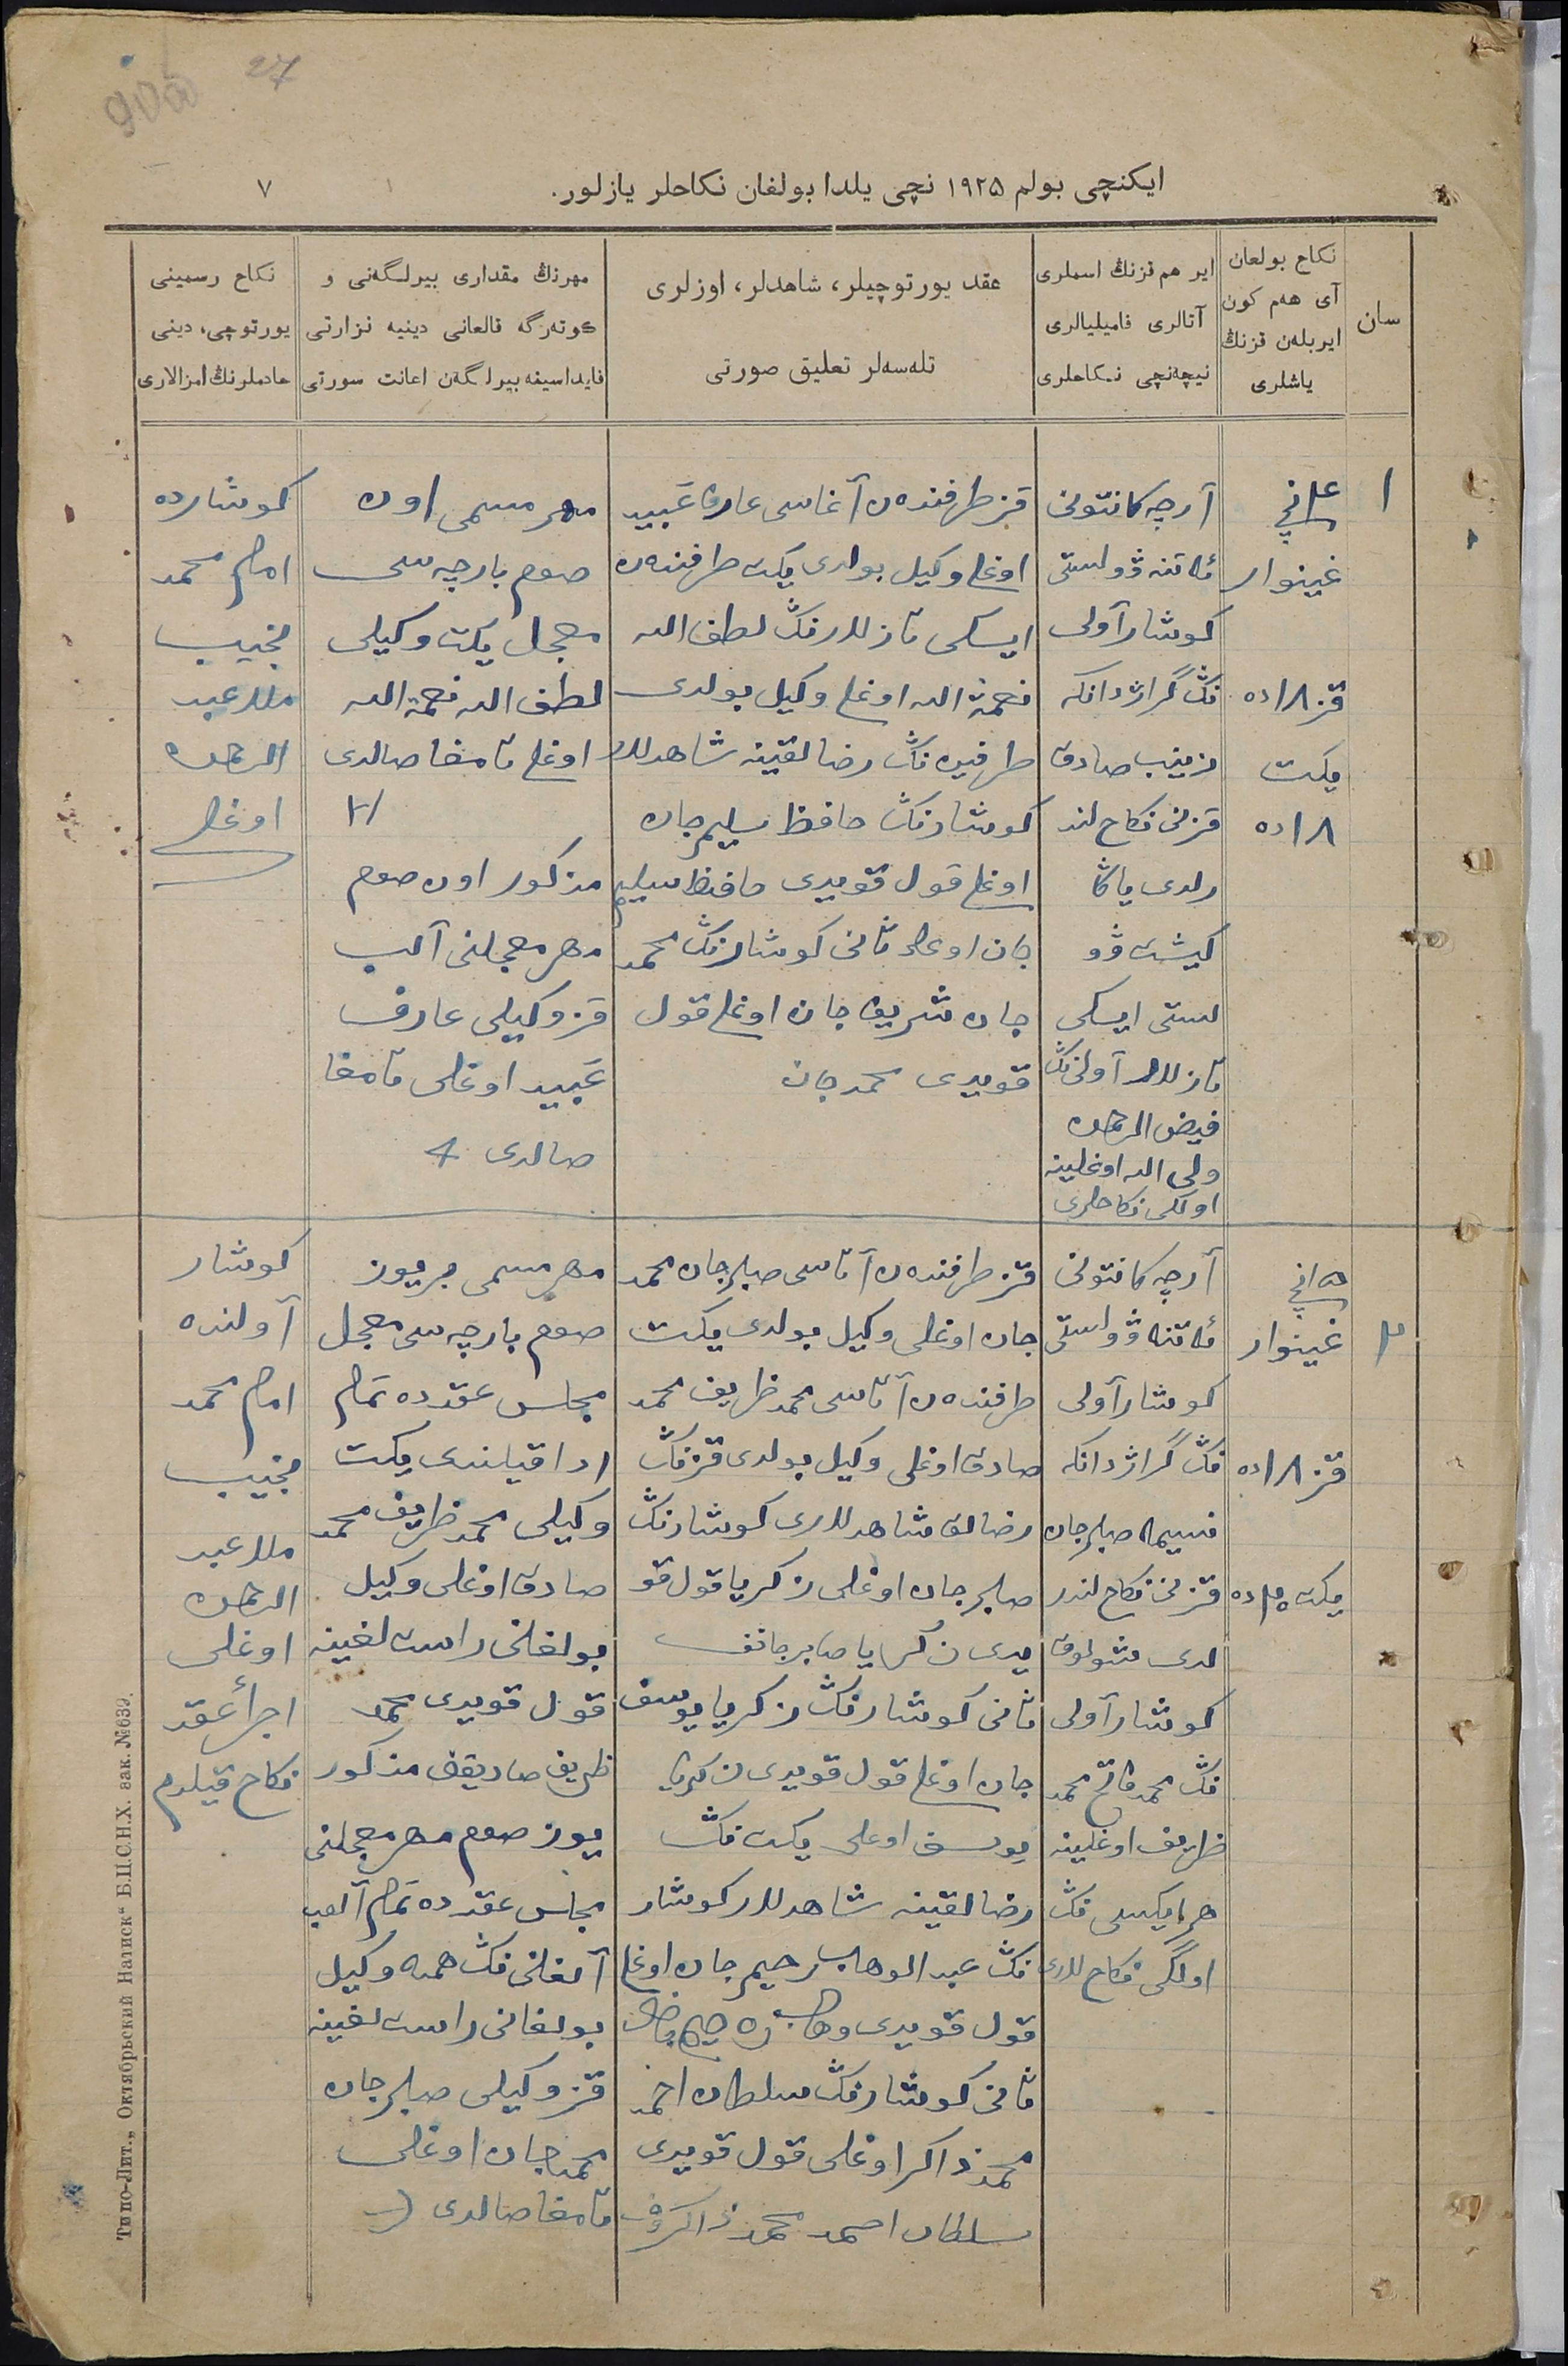 27
ایکنچی بولم ۱۹۲۵ نچی یلدا بولغان نکاحلر یازلور.
۷
سان
نکاح بولعان
آی هەم کون
ایربلەن قزنڭ
یاشلری
ایر هم قزنڭ اسملری
آتالری فامیلیالری
نیچەنچی نکاحلری
عقد یورتوچیلر، شاهدلر، اوزلری
تلەسەلر تعلیق صورتی
مهرنڭ مقداری بیرلگەنی و
کوتەرگە قالعانی دینیە نزارتی
فایداسینە بیرلگەن اعانت سورتی
نکاح رسمینی
یورتوچی، دینی
خادملرنڭ امزالاری
۱
غینوار
قز ۱۸ ده
یکت
۱۸ ده
آرچە کانتونی
ڤولستی
کوشار آولی
نڭ گراژدانکە
زینب صادق
قزنی نکاح لند
رلدی یاڭا
کیشت ڤو
لستی ایسکی
نازلار آولی نڭ
فیض الرحمن
ولی الله اوغلینە
اولگی نکاحلری
قز طرفندەن آغاسی عارف عبید
اوغلی وکیل بولدی یکت طرفندەن
ایسکی نازلارنڭ لطف الله
نعمة الله اوغلی وکیل بولدی
طرفین نڭ رضالقینە شاهدلار
کوشارنڭ حافظ سلیم جان
اوغلی قول قویدی حافظ سلیم
جان اوغلی ثانی کوشارنڭ محمد
جان شریف جان اوغلی قول
قویدی محمد جان
مهر مسمی اون
صوم بارچەسی
معجل یکت وکیلی
لطف الله نعمة الله
اوغلی تامغا صالدی
مذکور اون صوم
مهر معجلنی آلب
قز وکیلی عارف
عبید اوغلی تامغا
صالدی
کوشارده
امام محمد
نجیب
ملا عبد
الرحمن
اوغلی
۲
غینوار
قز ۱۸ ده
آرچە کانتونی
ڤولستی
کوشار آولی
نڭ گراژدانکە
نسیمە صابرجان
قزنی نکاح لندر
لدی
کوشار آولی
نڭ محمد فاتح محمد
ظریف اوغلینە
هر ایکسی نڭ
اولگی نکاح لاری
قز طرفندەن آتاسی صابرجان محمد
جان اوغلی وکیل بولدی یکت
طرفندەن آتاسی محمد ظریف محمد
صادق اوغلی وکیل بولدی قزنڭ
رضالق شاهدلاری کوشارنڭ
صابرجان اوغلی زکریا قول قو
یدی زکریا صابرجانف
ثانی کوشارنڭ زکریا یوسف
جان اوغلی قول قویدی زکریا
یوسف اوغلی یکت نڭ
رضالقینە شاهدلار کوشار
نڭ عبدالوهاب رحیم جان اوغلی
قول قویدی وهاب
ثانی کوشارنڭ سلطان احمد
محمد ذاکر اوغلی قول قویدی
سلطان احمد محمد ذاکروف
مهر مسمی بر یوز
صوم بارچەسی معجل
مجلس عقدده تمام
ادا قیلندی یکت
وکیلی محمد ظریف محمد
صادق اوغلی وکیل
بولغانی راست لغینە
قول قویدی محمد
ظریف صادیقف مذکور
یوز صوم مهر معجلنی
مجلس عقدده تمام آلب
آلغانی نڭ همە وکیل
بولغانی راست لغینە
قز وکیلی صابرجان
محمد جان اوغلی
تامغا صالدی
کوشار
آولنده
امام محمد
نجیب
ملا عبد
الرحمن
اوغلی
اجرأ عقد
نکاح قیلدم
Типо-Лит. „Октябрьский Натиск“ Б.Ц.С.Н.Х. зак. №639.